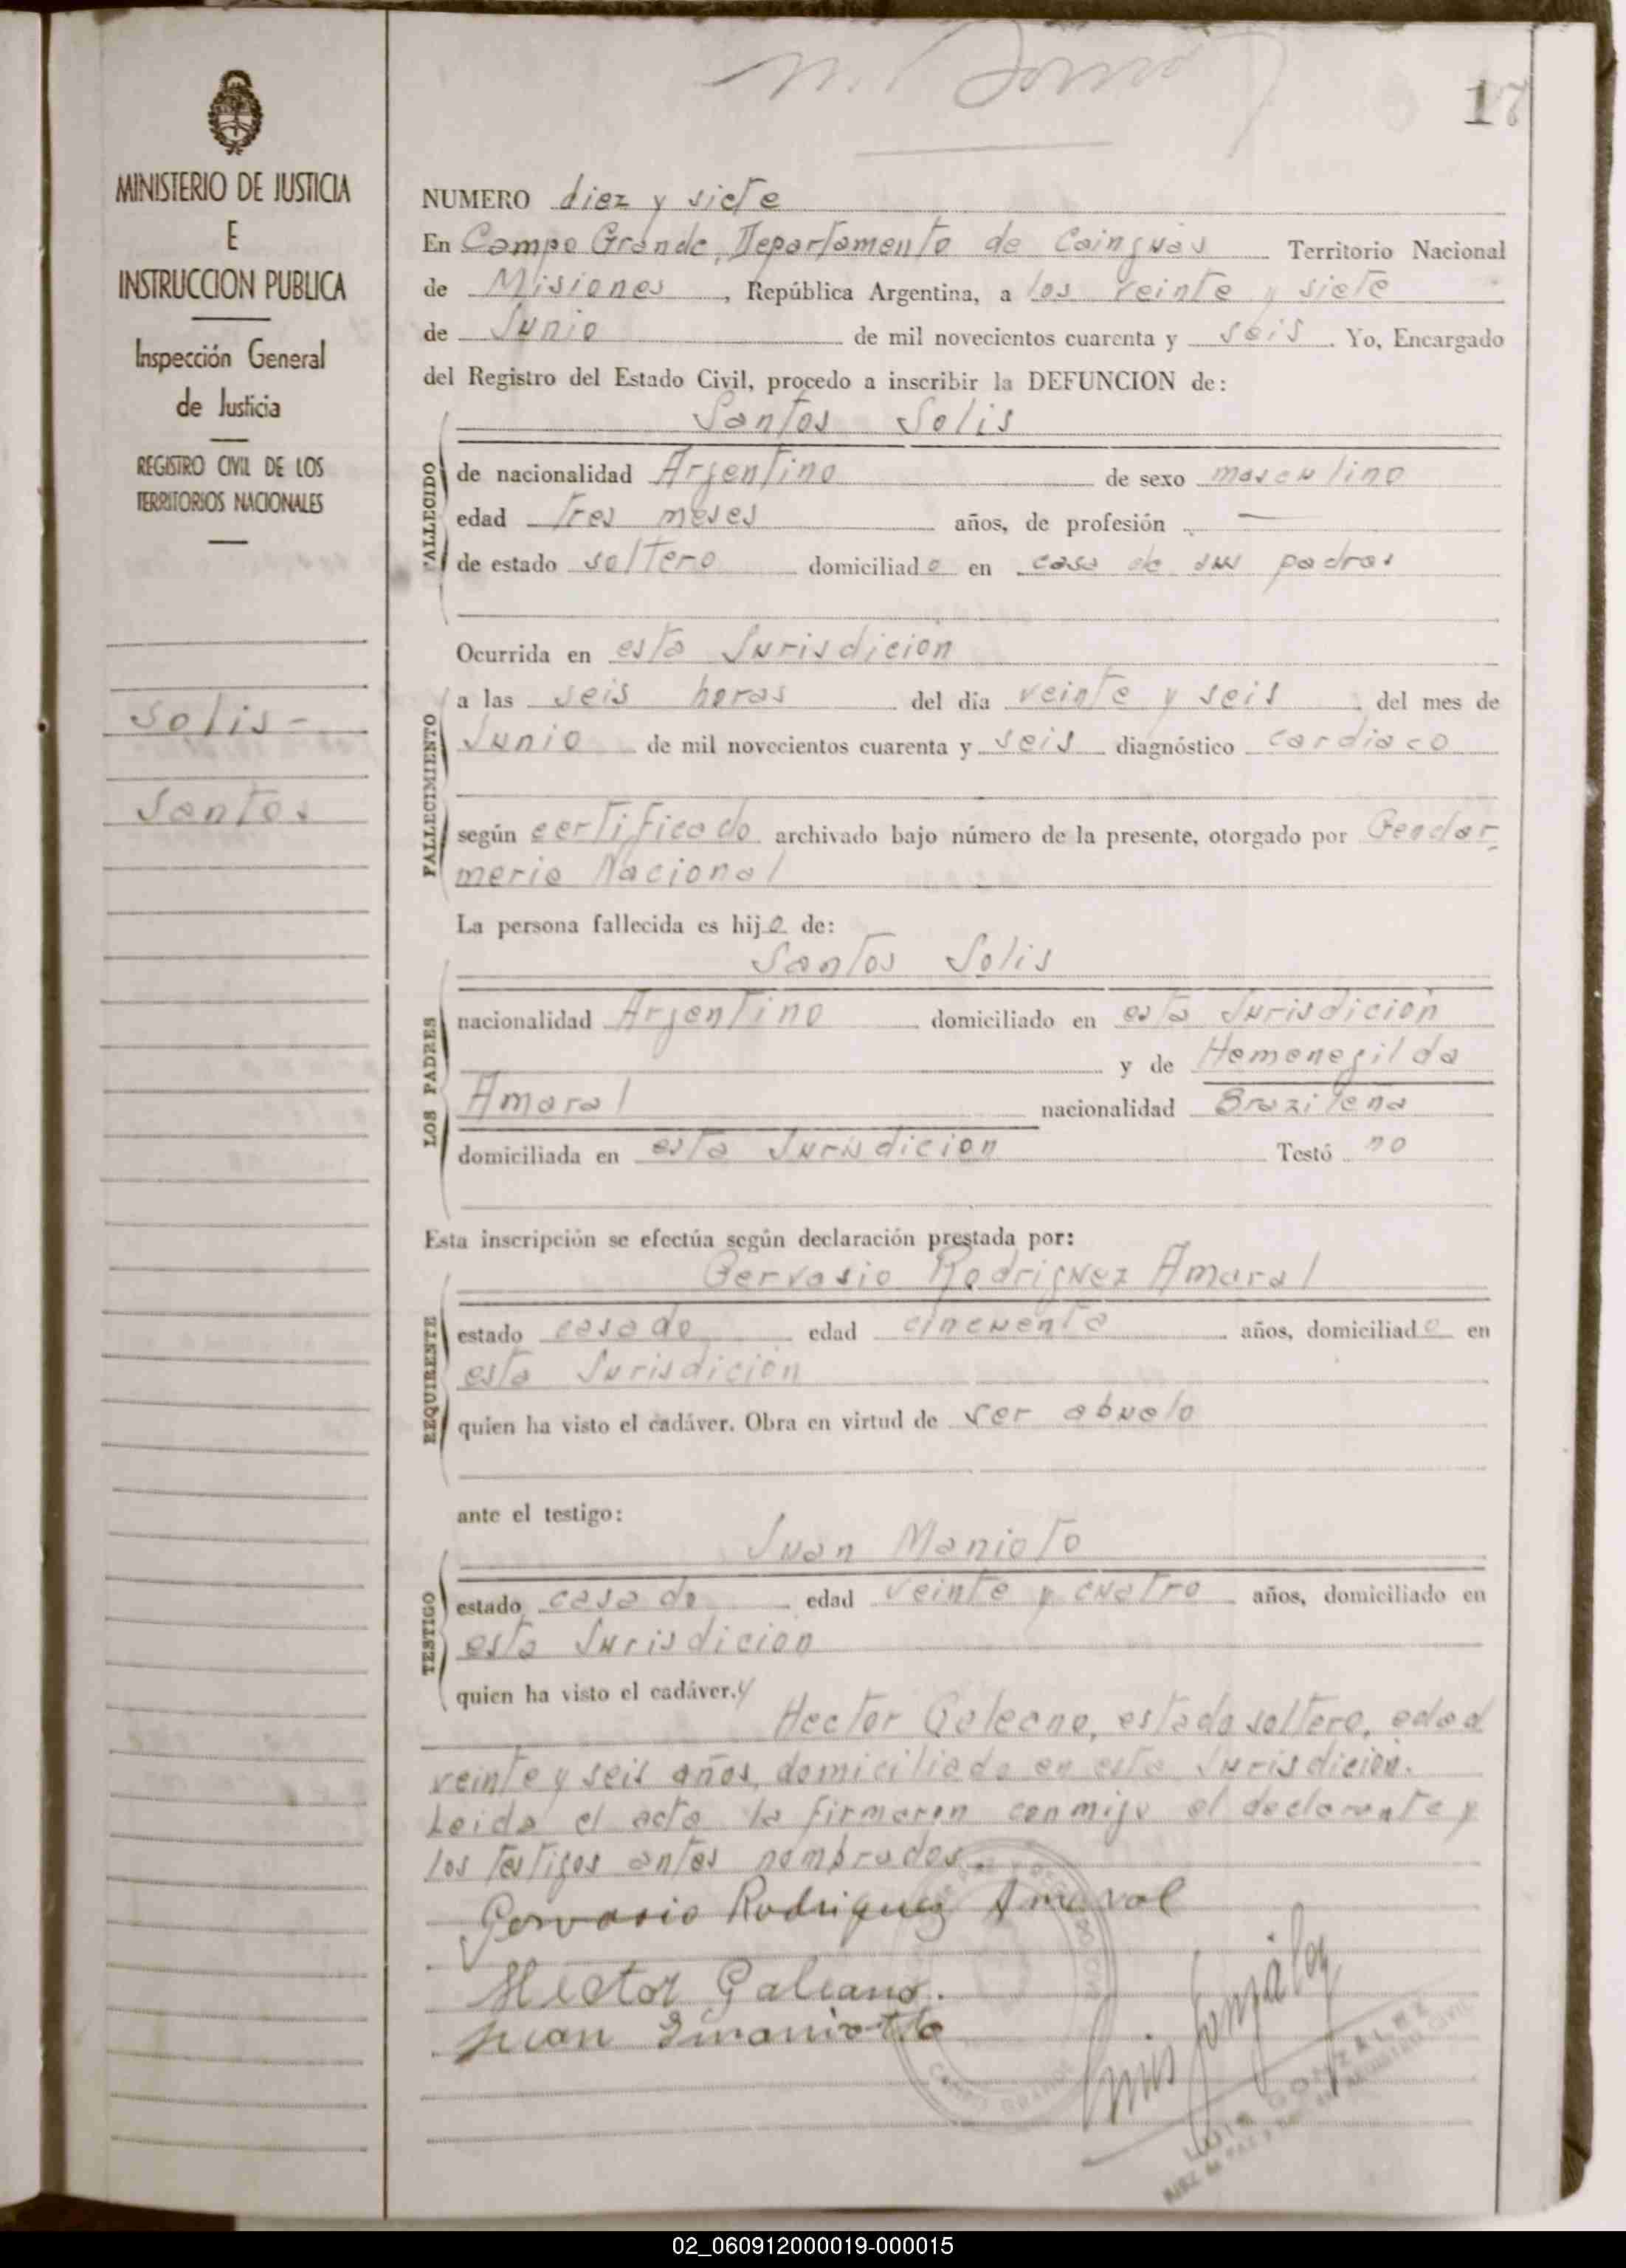 17
MINISTERIO DE JUSTICIA
E
INSTRUCCION PUBLICA
Inspección General
de Justicia
REGISTRO CIVIL DE LOS
TERRITORIOS NACIONALES
Solis-
Santos
NUMERO diez y siete
En Campo Grande, Departamento de Cainguas Territorio Nacional
de Misiones, República Argentina, a los veinte y siete
de Junio de mil novecientos cuarenta y seis. Yo, Encargado
del Registro del Estado Civil, procedo a inscribir la DEFUNCION de:
Santos Solis
FALLECIDO
de nacionalidad Argentino de sexo masculino
edad tres meses años, de profesión —
de estado soltero domiciliado en casa de sus padres
Ocurrida en esta Jurisdicion
FALLECIMIENTO
a las seis horas del día veinte y seis del mes de
Junio de mil novecientos cuarenta y seis diagnóstico cardiaco
según certificado archivado bajo número de la presente, otorgado por Gendar-
meria Nacional
La persona fallecida es hijo de:
Santos Solis
LOS PADRES
nacionalidad Argentino domiciliado en esta Jurisdición
y de Hemenegilda
Amaral nacionalidad Brazileña
domiciliada en esta Jurisdicion Testó no
Esta inscripción se efectúa según declaración prestada por:
Gervasio Rodriguez Amaral
REQUIRENTE
estado casado edad cincuenta años, domiciliado en
esta Jurisdición
quien ha visto el cadáver. Obra en virtud de ser abuelo
ante el testigo:
Juan Manioto
TESTIGO
estado casado edad veinte y cuatro años, domiciliado en
esta Jurisdicion
quien ha visto el cadáver. y
Hector Galeano, estado soltero, edad
veinte y seis años, domiciliado en esta Jurisdicion.
Leida el acta la firmaron conmigo el declarante y
los testigos antes nombrados.
Gervasio Rodriguez Amaral
Hector Galeano.
Juan
Luis González
CAMPO GRANDE
LUIS GONZALEZ
JUEZ DE PAZ REGISTRO CIVIL
02_060912000019-000015